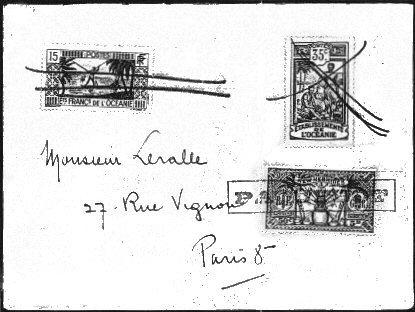 15 POSTES
Ets FRANÇS DE L'OCÉANIE
35c
ÉTABLISSEMENTS
DE
L'OCÉANIE
Monsieur Leralle
27. Rue Vignon
Paris 8-